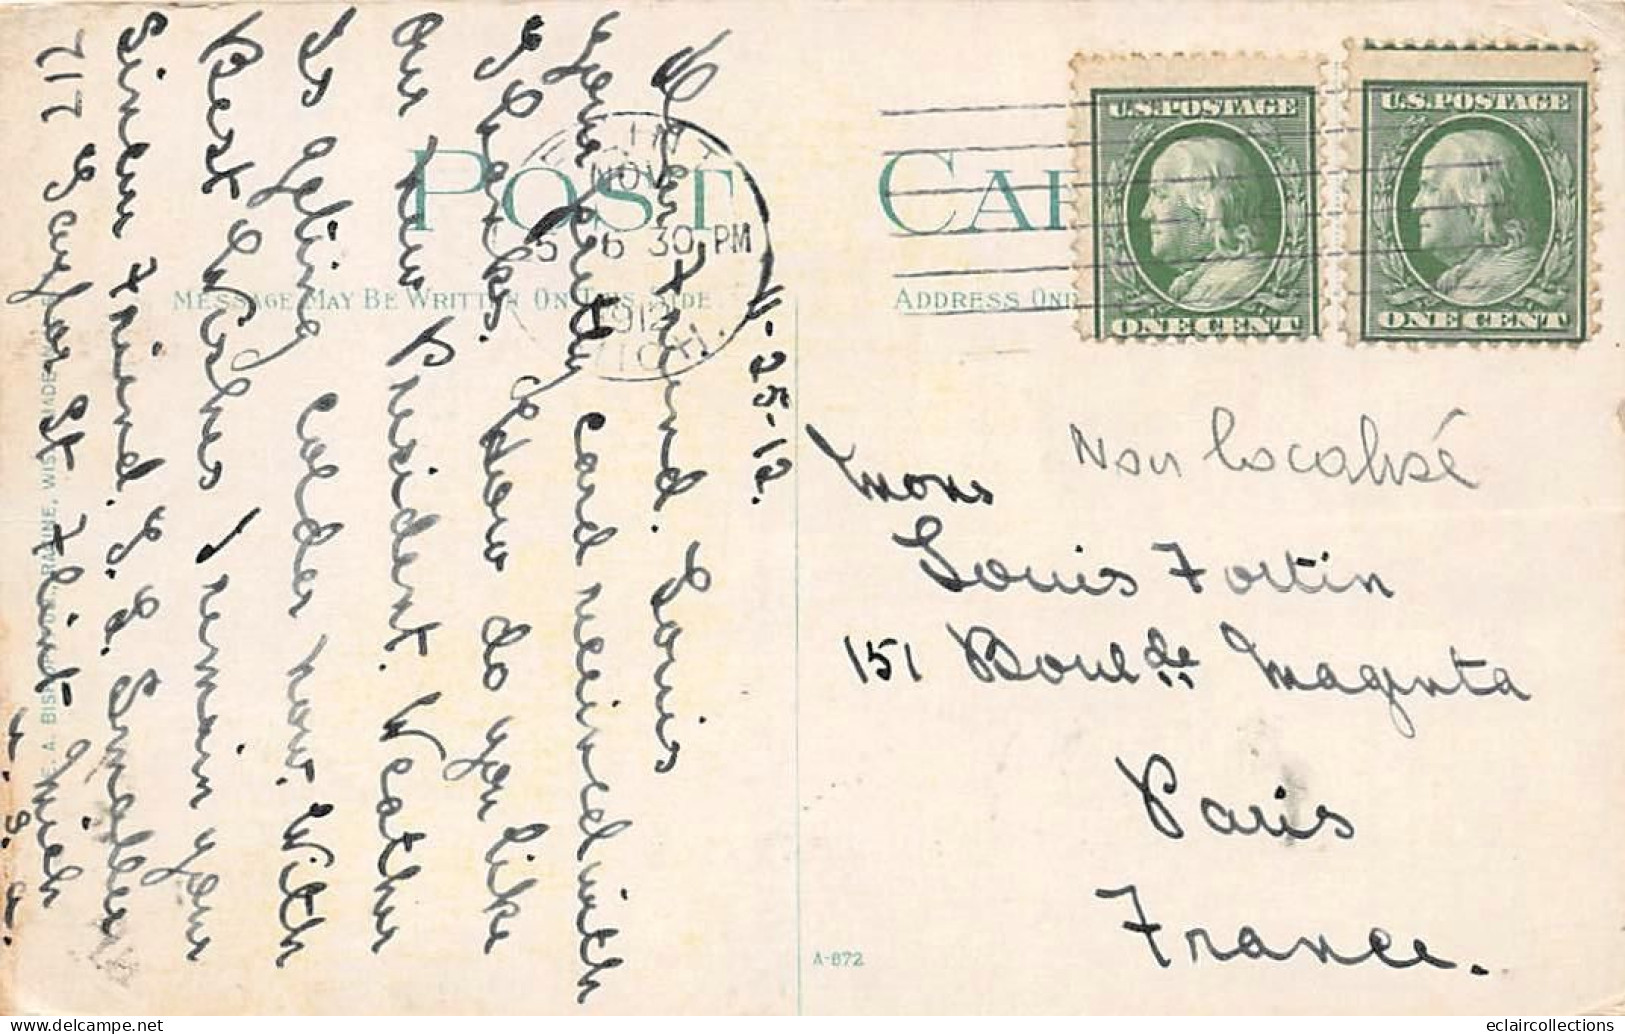 11-25-12.
Dear Friend. Louis
your pretty card received with
thanks. How do you like
our new President. Weather
is geting colder now. With
Best Wishes I remain your
Sincere Friend. L. L. Smalley
717 Taylor St Flint Mich
U. S. A.
POST CAR
MESSAGE MAY BE WRITTEN ON THIS SIDE
ADDRESS ON
FLINT
NOV
25
6 30 PM
1912
MICH.
U.S.POSTAGE
ONE CENT
U.S.POSTAGE
ONE CENT
Non localisé
Mons
Louis Fortin
151 Boul de Magenta
Paris
France.
RACINE, WIS.
A-872
eclaircollections